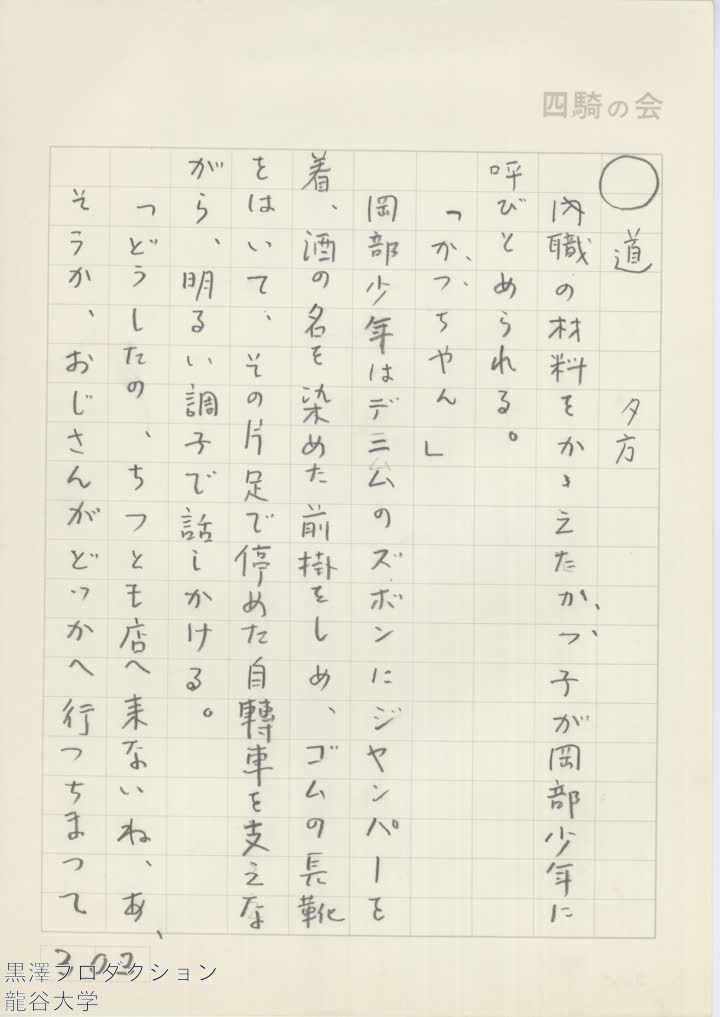 四騎の会
○ 道 夕方
内職の材料をかゝえたかつ子が岡部少年に
呼びとめられる。
「かつちやん」
岡部少年はデニムのズボンにジヤンパーを
着、酒の名を染めた前掛をしめ、ゴムの長靴
をはいて、その片足で停めた自轉車を支えな
がら、明るい調子で話しかける。
「どうしたの、ちつとも店へ来ないね、あ、
そうか、おじさんがどつかへ行つちまつて
302
黒澤プロダクション
龍谷大学